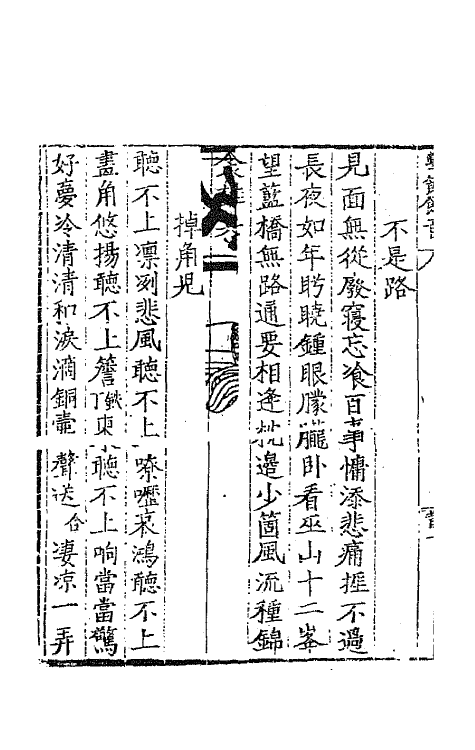 不是路
見面無從廢寢忘飡百事慵添悲痛捱不過
長夜如年盻曉鍾眼朦朧卧看巫山十二峯
望藍橋無路通要相逢枕邊少箇風流種錦
掉角兒
聽不上凛冽悲風聽不上嘹嚦哀鴻聽不上
畫角悠揚聽不上簷丁鉄東聽不上响當當驚
好夢冷清清和淚滴銅壺聲送合凄凉一弄